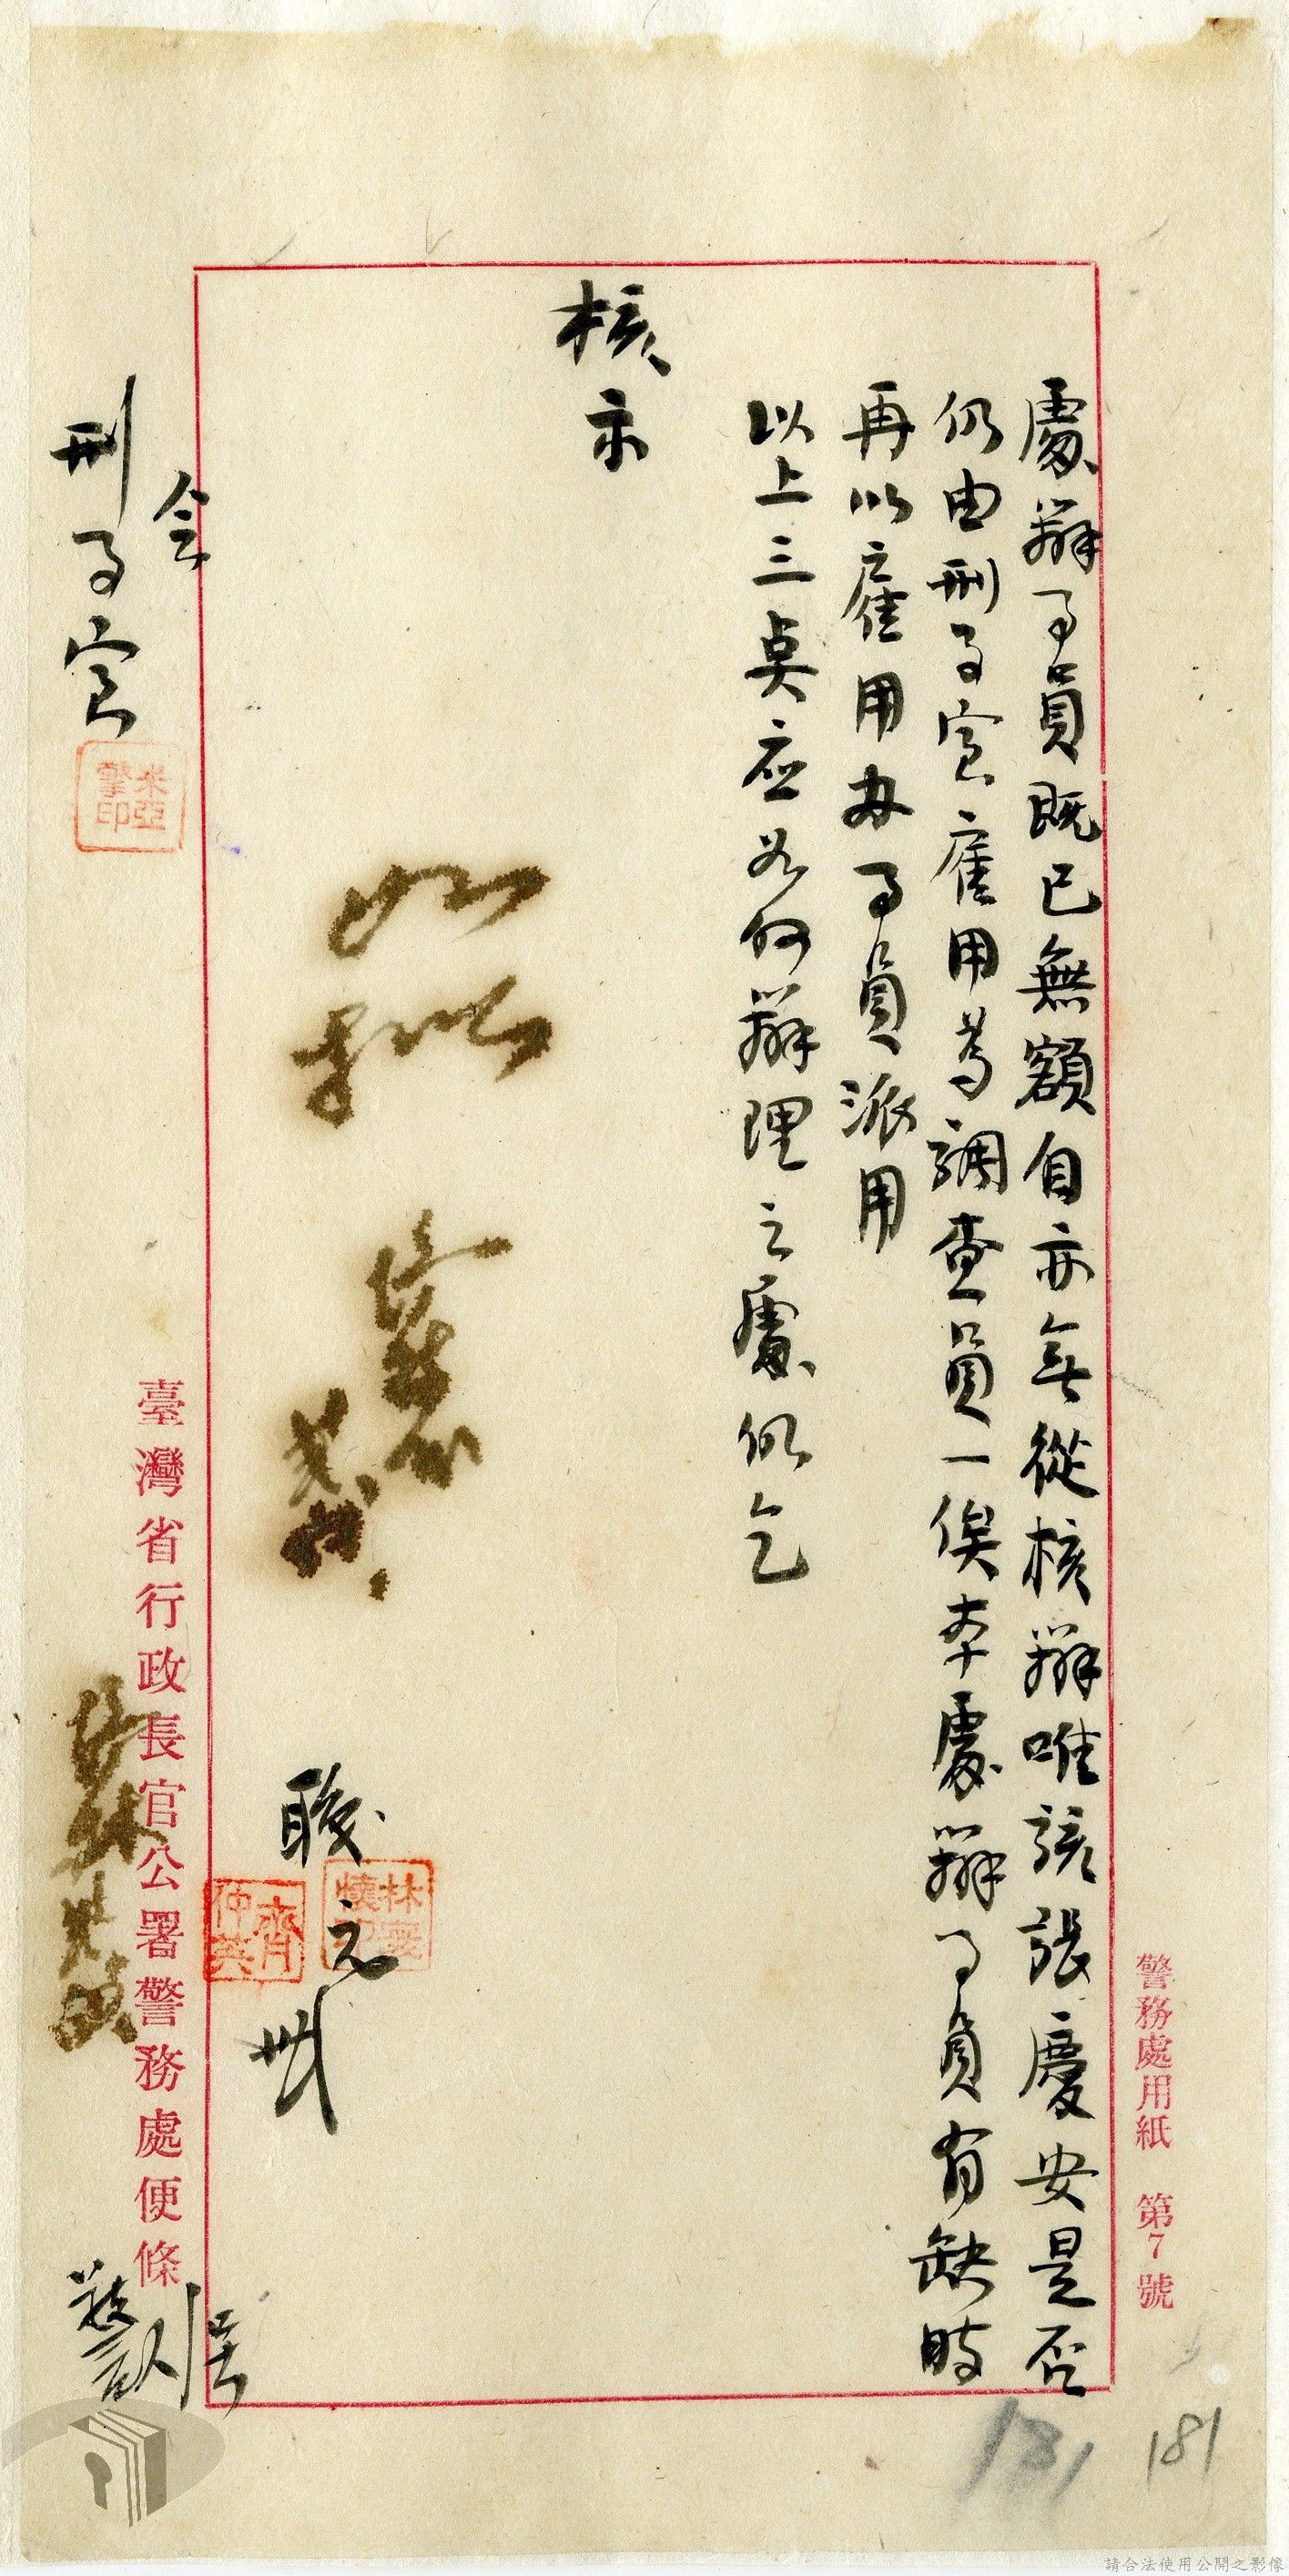 警務處用紙 第7號
處辦事員既已無額自亦無從核辦唯該張慶安是否
仍由刑事室雇用為調查員一俟本處辦事員有缺時
再以雇用办事員派用
以上三点应如何辦理之處仍乞
核示
如擬
職
林慶懷印
齊仲英
元
廿
会
刑事室
臺灣省行政長官公署警務處便條
181
181
請合法使用公開之影像